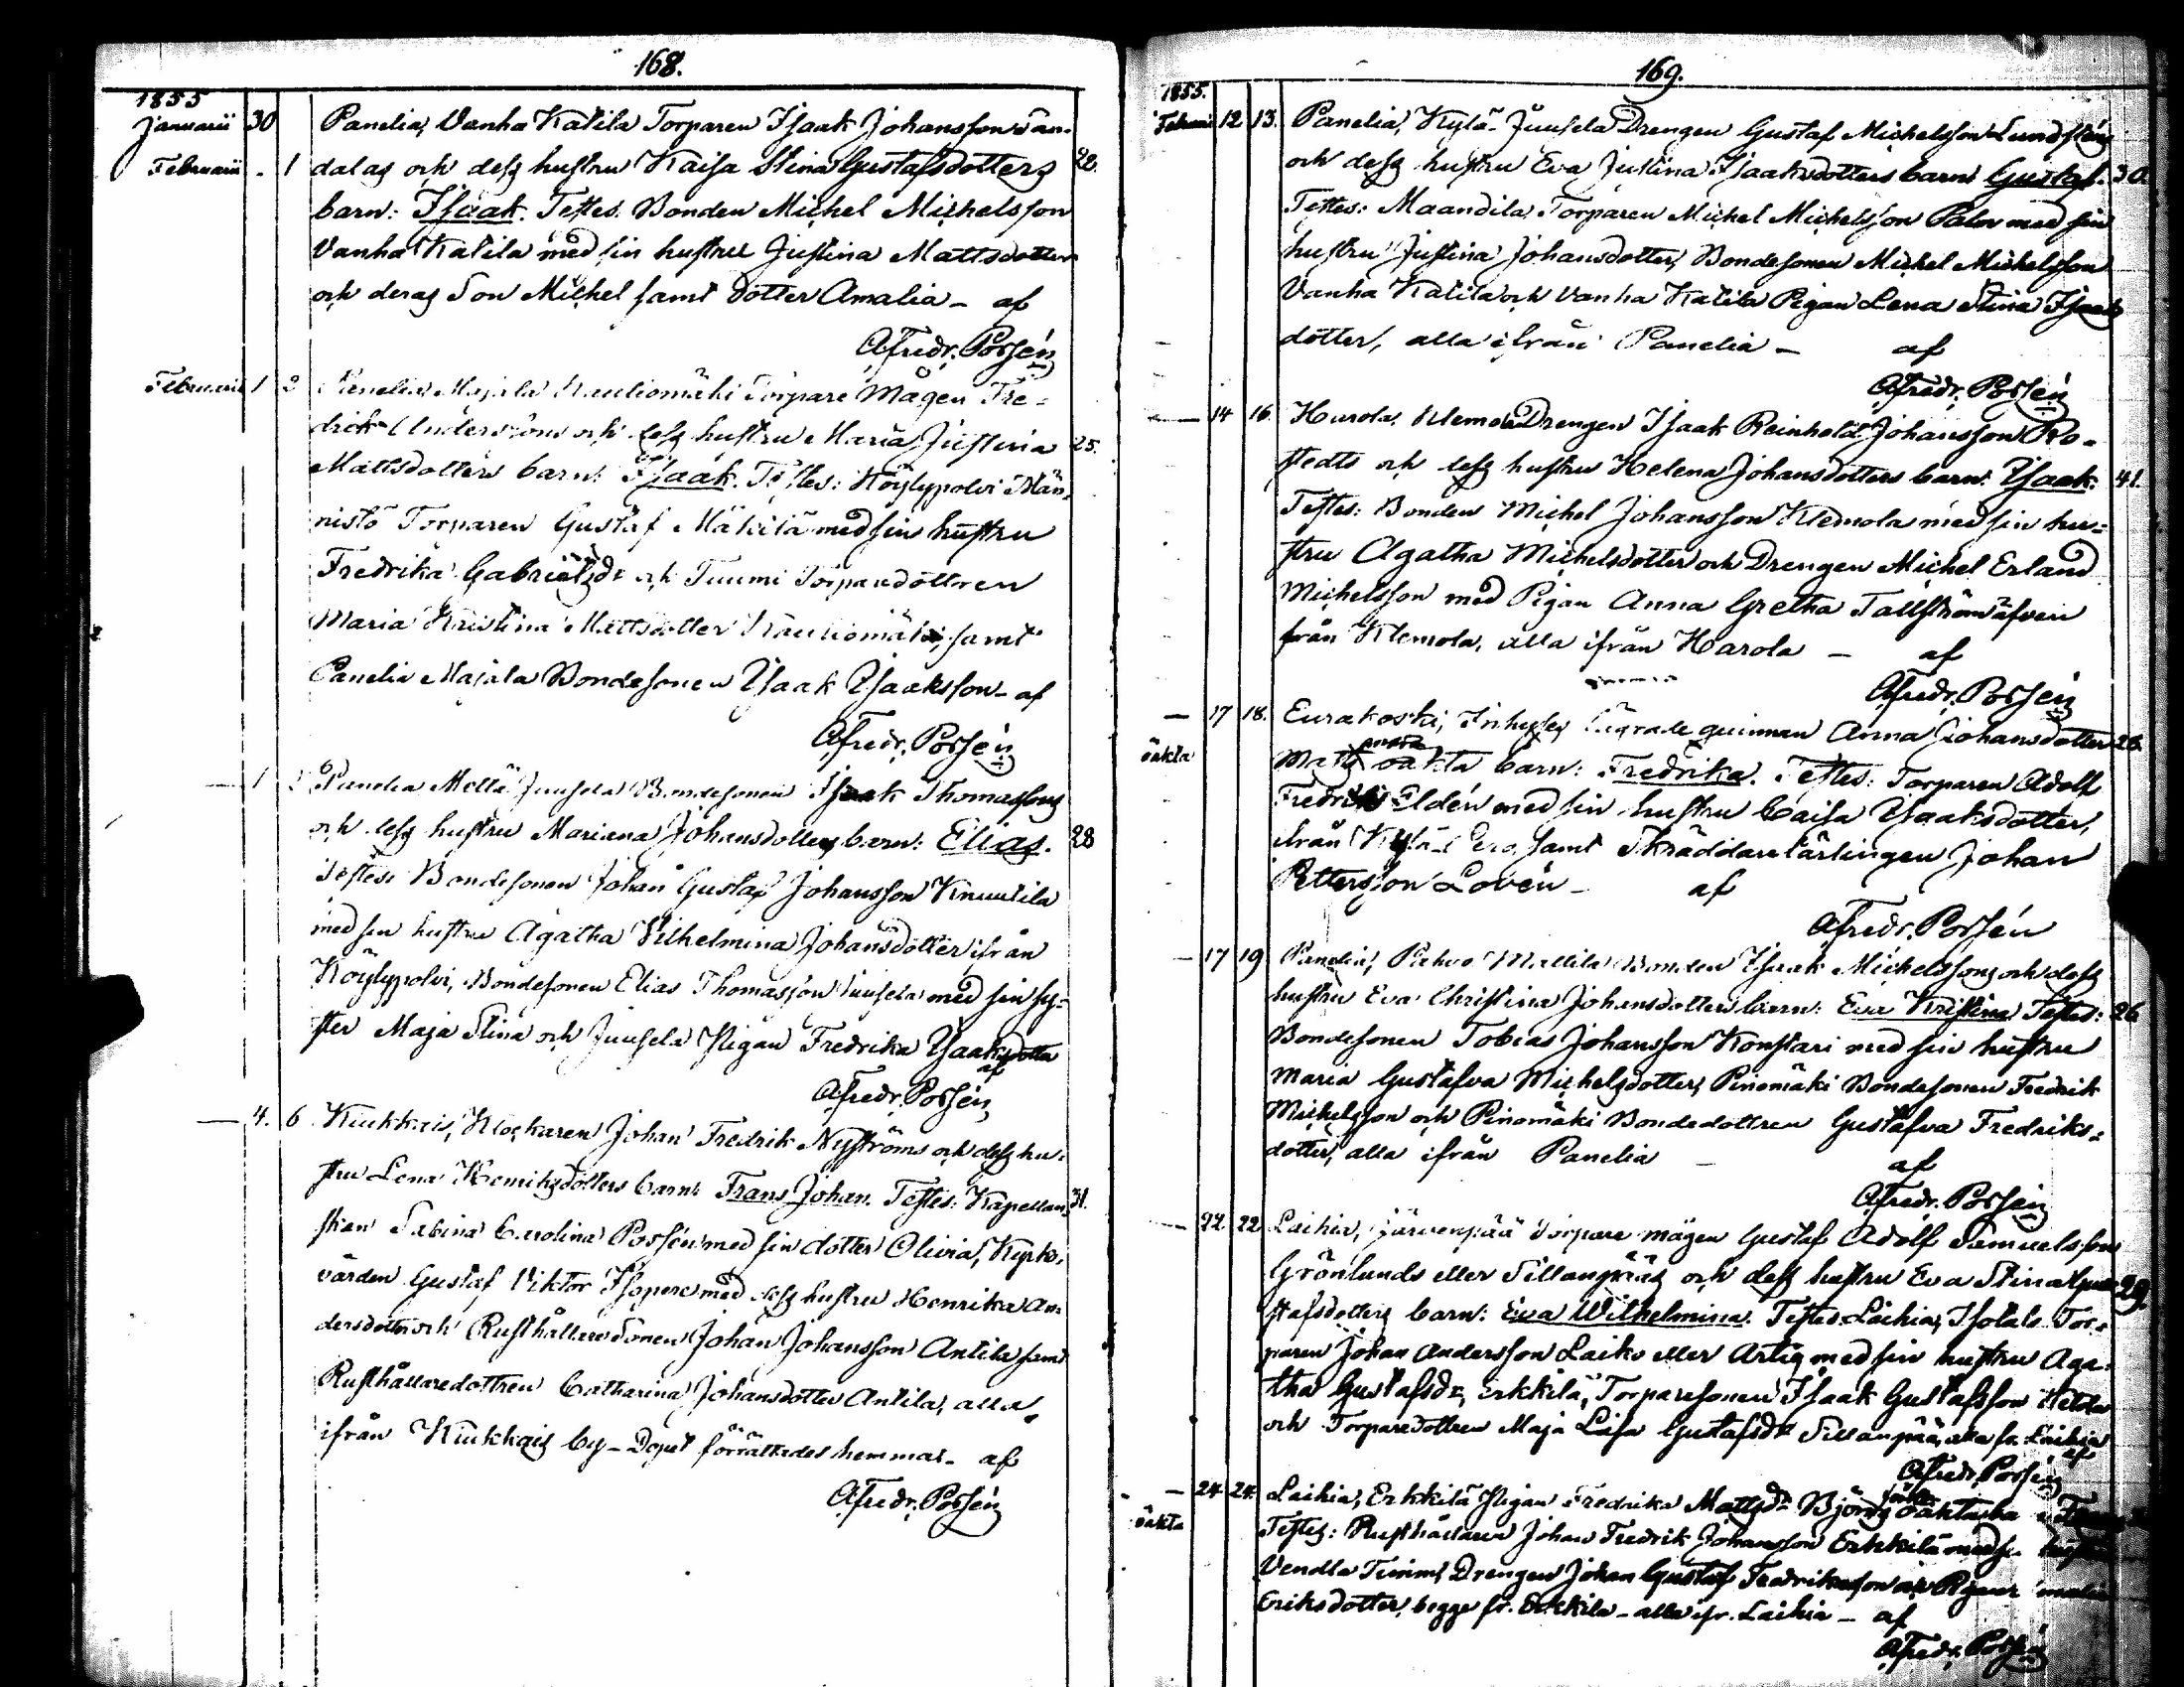 168.
1855
Januarii 30 Panelia, Vanha Katila Torparen Isaak Johansson San-
Februarii - 1 dalas och dess hustru Kaisa Stina Gustafsdotters 22.
barn: Isaak. Testes. Bonden Michel Michelsson
Vanha Katila med sin hustru Justina Mattsdotter
och deras Son Michel samt dotter Amalia - af
A. Fredr. Porsén
Februarii 1 2 Panelia, Majala Rauliomäki Torpare Mågen Fre-
drik Anderssons och dess hustru Maria Justina 25.
Mattsdotters barn: Isaak. Testes: Köylypolvi Män-
nistö Torparen Gustaf Mäkilä med sin hustru
Fredrika Gabrielsdr och Tuumi Torparedottren
Maria Kristina Mattsdotter samt
Panelia Majala Bondesonen Isaak Isaaksson - af
A. Fredr. Porsén
— 1 Panelia Mellä Juusela Bondesonen Isaak Thomassons
och dess hustru Mariana Johansdotters barn: Elias. 28
Testes: Bondesonen Johan Gustaf Johansson Knuutila
med sin hustru Agatha Vilhelmina Johansdotter ifrån
Köylypolvi, Bondesonen Elias Thomasson Juusela med sin sy-
ster Maja Stina och Juusela Pigan Fredrika Isaaksdotter
af
A. Fredr. Porsén
— 4. 6 Kiukkais, Klockaren Johan Fredrik Nyströms och dess hu-
stru Lena Henriksdotters barn: Frans Johan. Testes: Kapellan- 31.
skan Sabina Carolina Porsén med sin dotter Olivia, Kyrko-
värden Gustaf Viktor Isopere med dess hustru Henrika An-
dersdotter och Rusthållare Sonen Johan Johansson Antila samt
Rusthållaredottren Catharina Johansdotter Antila, alla
ifrån Kiukkais by - Dopet förrättades hemma. - af
A. Fredr. Porsén
169.
1855.
Februarii 12 13. Panelia, Kylä-Juusela Drengen Gustaf Michelsson Lundstens
och dess hustru Eva Justina Isaaksdotters barn: Gustaf. 30
Testes: Maandila Torparen Michel Michelsson Palor med sin
hustru Justina Johansdotter, Bondesonen Michel Michelsson
Vanha Katila och Vanha Katila Pigan Lena Stina Isaaks
dotter, alla ifrån Panelia - af
A. Fredr. Porsén
— 14 16. Harola, Klemola Drengen Isaak Reinhold Johansson Ro-
stedts och dess hustru Helena Johansdotters barn: Isaak. 41.
Testes: Bonden Michel Johansson Klemola med sin hu-
stru Agatha Michelsdotter och Drengen Michel Erland
Michelsson med Pigan Anna Gretha Tallström äfven
från Klemola, alla ifrån Harola - af
A. Fredr. Porsén
— 17 18. Eurakoski, Inhyses qvinnan Anna Johansdotter 26.
oäkta Matts oäkta barn: Fredrika. Testes: Torparen Adolf
Fredrik Eldén med sin hustru Caisa Isaaksdotter,
ifrån Kylä-Pero, samt Skräddarelärlingen Johan
Pettersson Lovén - af
A. Fredr. Porsén
— 17 19 Panelia, Mattila Bonden Isaak Michelssons och dess
hustru Eva Christina Johansdotters barn: Eva Kristina Testes: 26
Bondesonen Tobias Johansson Konstari med sin hustru
Maria Gustafva Michelsdotter, Pinomäki Bondesonen Fredrik
Michelsson och Pinomäki Bondedottren Gustafva Fredriks-
dotter, alla ifrån Panelia - af
A. Fredr. Porsén
— 22. 22 Laihia, Järvenpää Torpare mågen Gustaf Adolf Samuelsson
Grönlunds eller Sillanpääs och dess hustru Eva Stina Gu- 29.
stafsdotters barn: Eva Wilhelmina. Testes: Laihia, Isotalo Tor-
paren Johan Andersson Laiko eller Artig med sin hustru Aga-
tha Gustafsdr, Erkkilä, Torparesonen Isaak Gustafsson
och Torparedottren Maja Lisa Gustafsdr Sillanpää, alla fr. Laihia
af
A. Fredr. Porsén
— 24 24. Laihia, Erkkilä Pigan Fredrika Mattsdr Björns oäkta
oäkta Testes: Rusthållaren Johan Fredrik Johansson Erkkilä med s. hustru
Vendla Drengen Johan Gustaf Fredriksson
Eriksdotter, begge fr. Erkkilä - alla ifr. Laihia - af
A. Fredr. Porsén